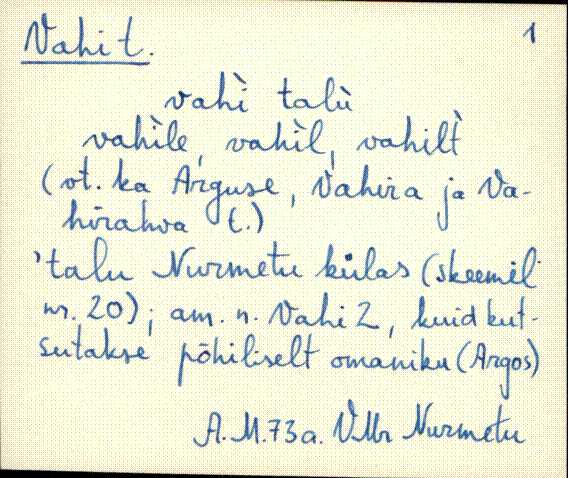 Vahi t. 1
vahì talù
vahìle, vahìl, vahilt̀
(vt. ka Arguse, Vahira ja Va-
hirahva t.)
'talu Nurmetu külas (skeemil
nr. 20); am. n. Vahi 2, kuid kut-
sutakse põhiliselt omaniku (Argos)
A.M. 73 a. VMr Nurmetu